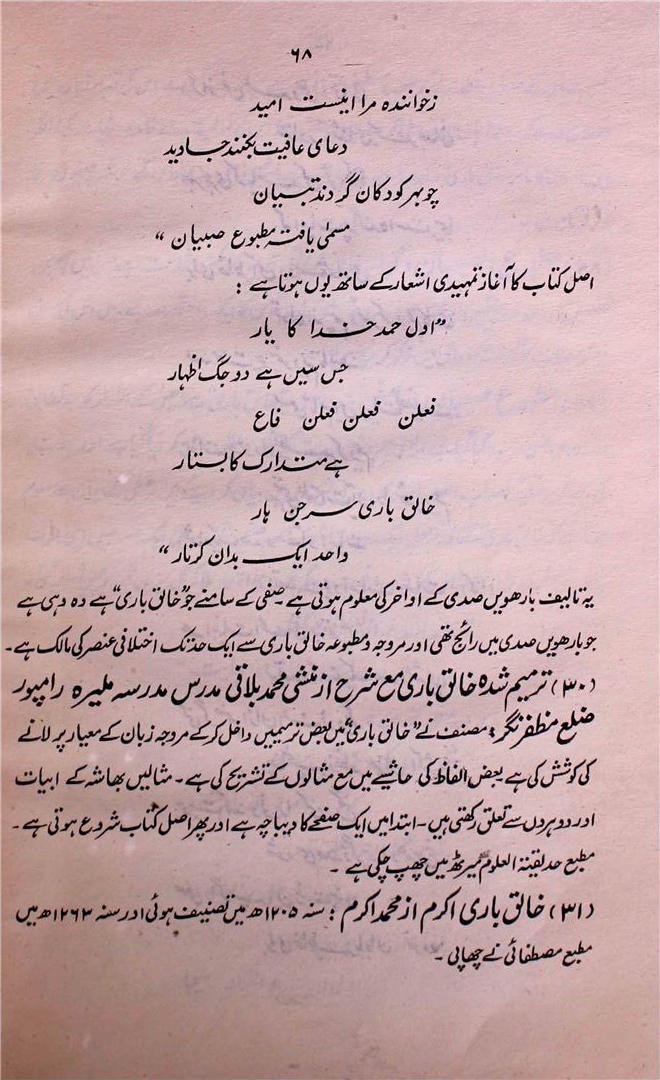 ۶۸
زخوانندہ مرا اینست امید
دعای عافیت بکنند جاوید
چو بہر کودکان گردند تبیان
مسمیٰ یافتہ مطبوع صبیان“
اصل کتاب کا آغاز تمہیدی اشعار کے ساتھ یوں ہوتا ہے :
”اول حمد خدا کا یار
جس سیں ہے دو جگ اظہار
فعلن فعلن فعلن فاع
ہے متدارک کا بستار
خالق باری سرجن ہار
واحد ایک بدان کرتار“
یہ تالیف بارھویں صدی کے اواخر کی معلوم ہوتی ہے۔ صفی کے سامنے جو ”خالق باری“ ہے وہ وہی ہے
جو بارھویں صدی میں رائج تھی اور مروجہ و مطبوعہ خالق باری سے ایک حد تک اختلافی عنصر کی مالک ہے۔
(۳۰) ترمیم شدہ خالق باری مع شرح از منشی محمد بلاقی مدرس مدرسہ ملیرہ رامپور
ضلع مظفر نگر : مصنف نے ”خالق باری“ میں بعض ترمیمیں داخل کر کے مروجہ زبان کے معیار پر لانے
کی کوشش کی ہے بعض الفاظ کی حاشیے میں مع مثالوں کے تشریح کی ہے۔ مثالیں بھاشہ کے ابیات
اور دوہروں سے تعلق رکھتی ہیں۔ ابتدا میں ایک صفحے کا دیباچہ ہے اور پھر اصل کتاب شروع ہوتی ہے۔
مطبع حدیقۃ العلوم میرٹھ میں چھپ چکی ہے۔
(۳۱) خالق باری اکرم از محمد اکرم : سنہ ۱۲۰۵ھ میں تصنیف ہوئی اور سنہ ۱۲۶۳ھ میں
مطبع مصطفائی نے چھاپی۔